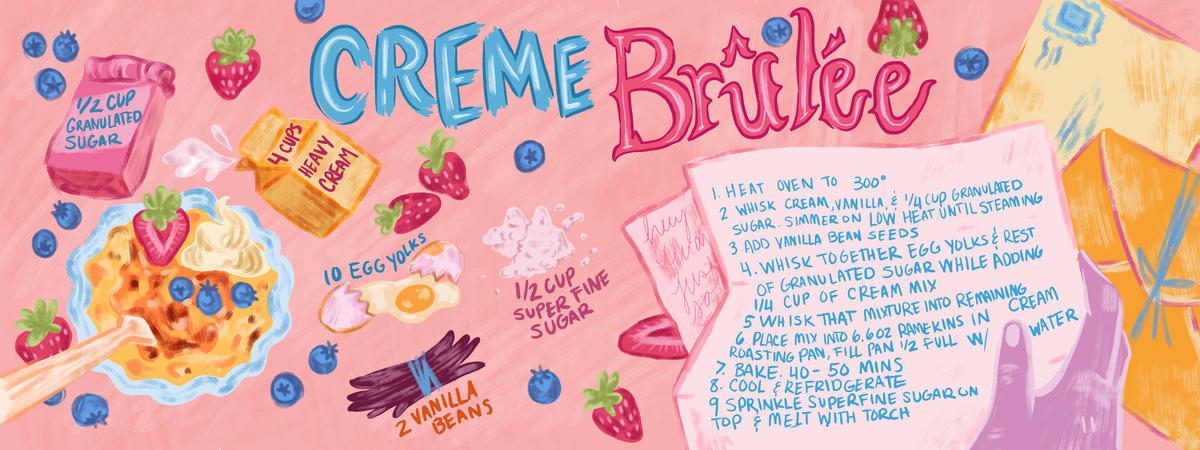 CREME Brûlée
1/2 CUP
GRANULATED
SUGAR
4 CUPS
HEAVY
CREAM
10 EGG YOLKS
1/2 CUP
SUPER FINE
SUGAR
2 VANILLA
BEANS
1. HEAT OVEN TO 300°
2 WHISK CREAM, VANILLA, & 1/4 CUP GRANULATED
SUGAR. SIMMER ON LOW HEAT UNTIL STEAMING
3 ADD VANILLA BEAN SEEDS
4. WHISK TOGETHER EGG YOLKS & REST
OF GRANULATED SUGAR WHILE ADDING
1/4 CUP OF CREAM MIX
5 WHISK THAT MIXTURE INTO REMAINING
CREAM
6 PLACE MIX INTO 6.6OZ RAMEKINS IN
ROASTING PAN, FILL PAN 1/2 FULL W/
WATER
7. BAKE. 40-50 MINS
8. COOL & REFRIDGERATE
9 SPRINKLE SUPERFINE SUGAR ON
TOP & MELT WITH TORCH